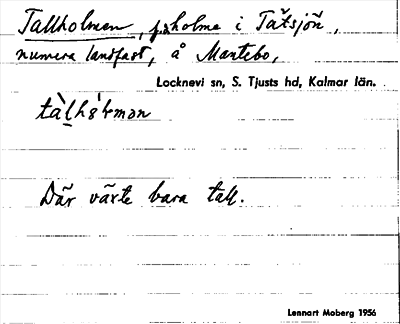 Tallholmen, f.d. holme i Tätsjön,
numera landfast, å Mantebo,
Locknevi sn, S. Tjusts hd, Kalmar län.
tàlhólmən
Där växte bara tall.
Lennart Moberg 1956